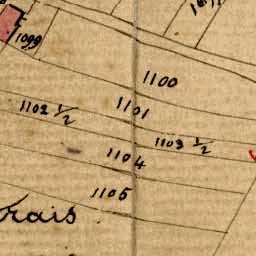 1099
1100
1101
1102 1/2
1103 1/2
1104
1105
rais